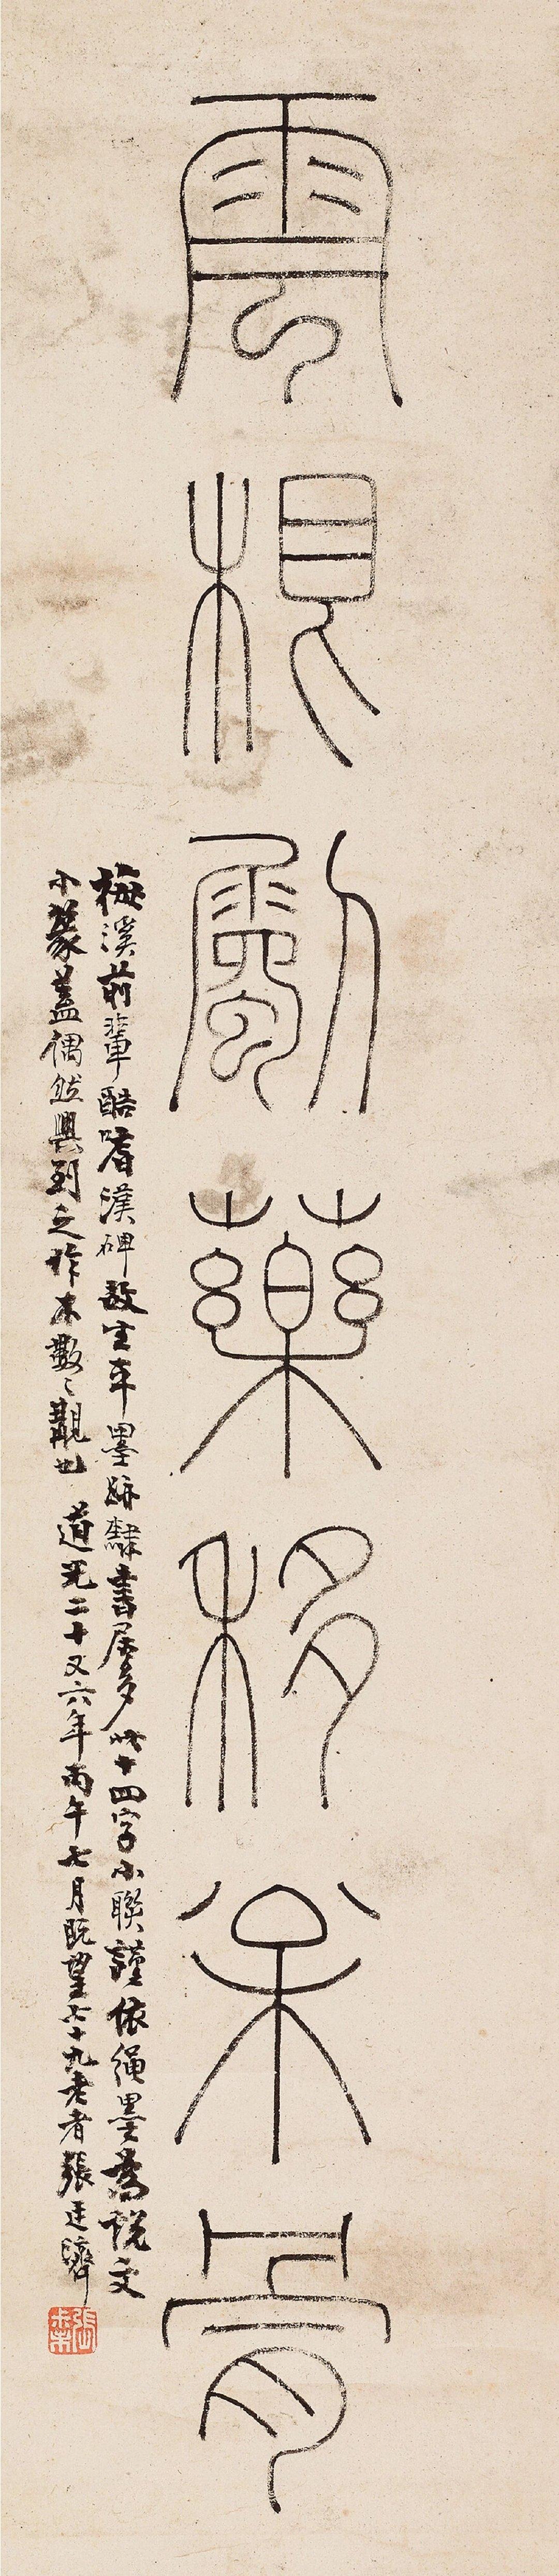 雲根斸藥移
梅溪前輩酷嗜漢碑故生平墨跡隸書居多此十四字小聯謹依繩墨為說文
小篆蓋偶然興到之作不數〻覯也 道光二十又六年丙午七月既望七十九老者張廷濟
張叔未